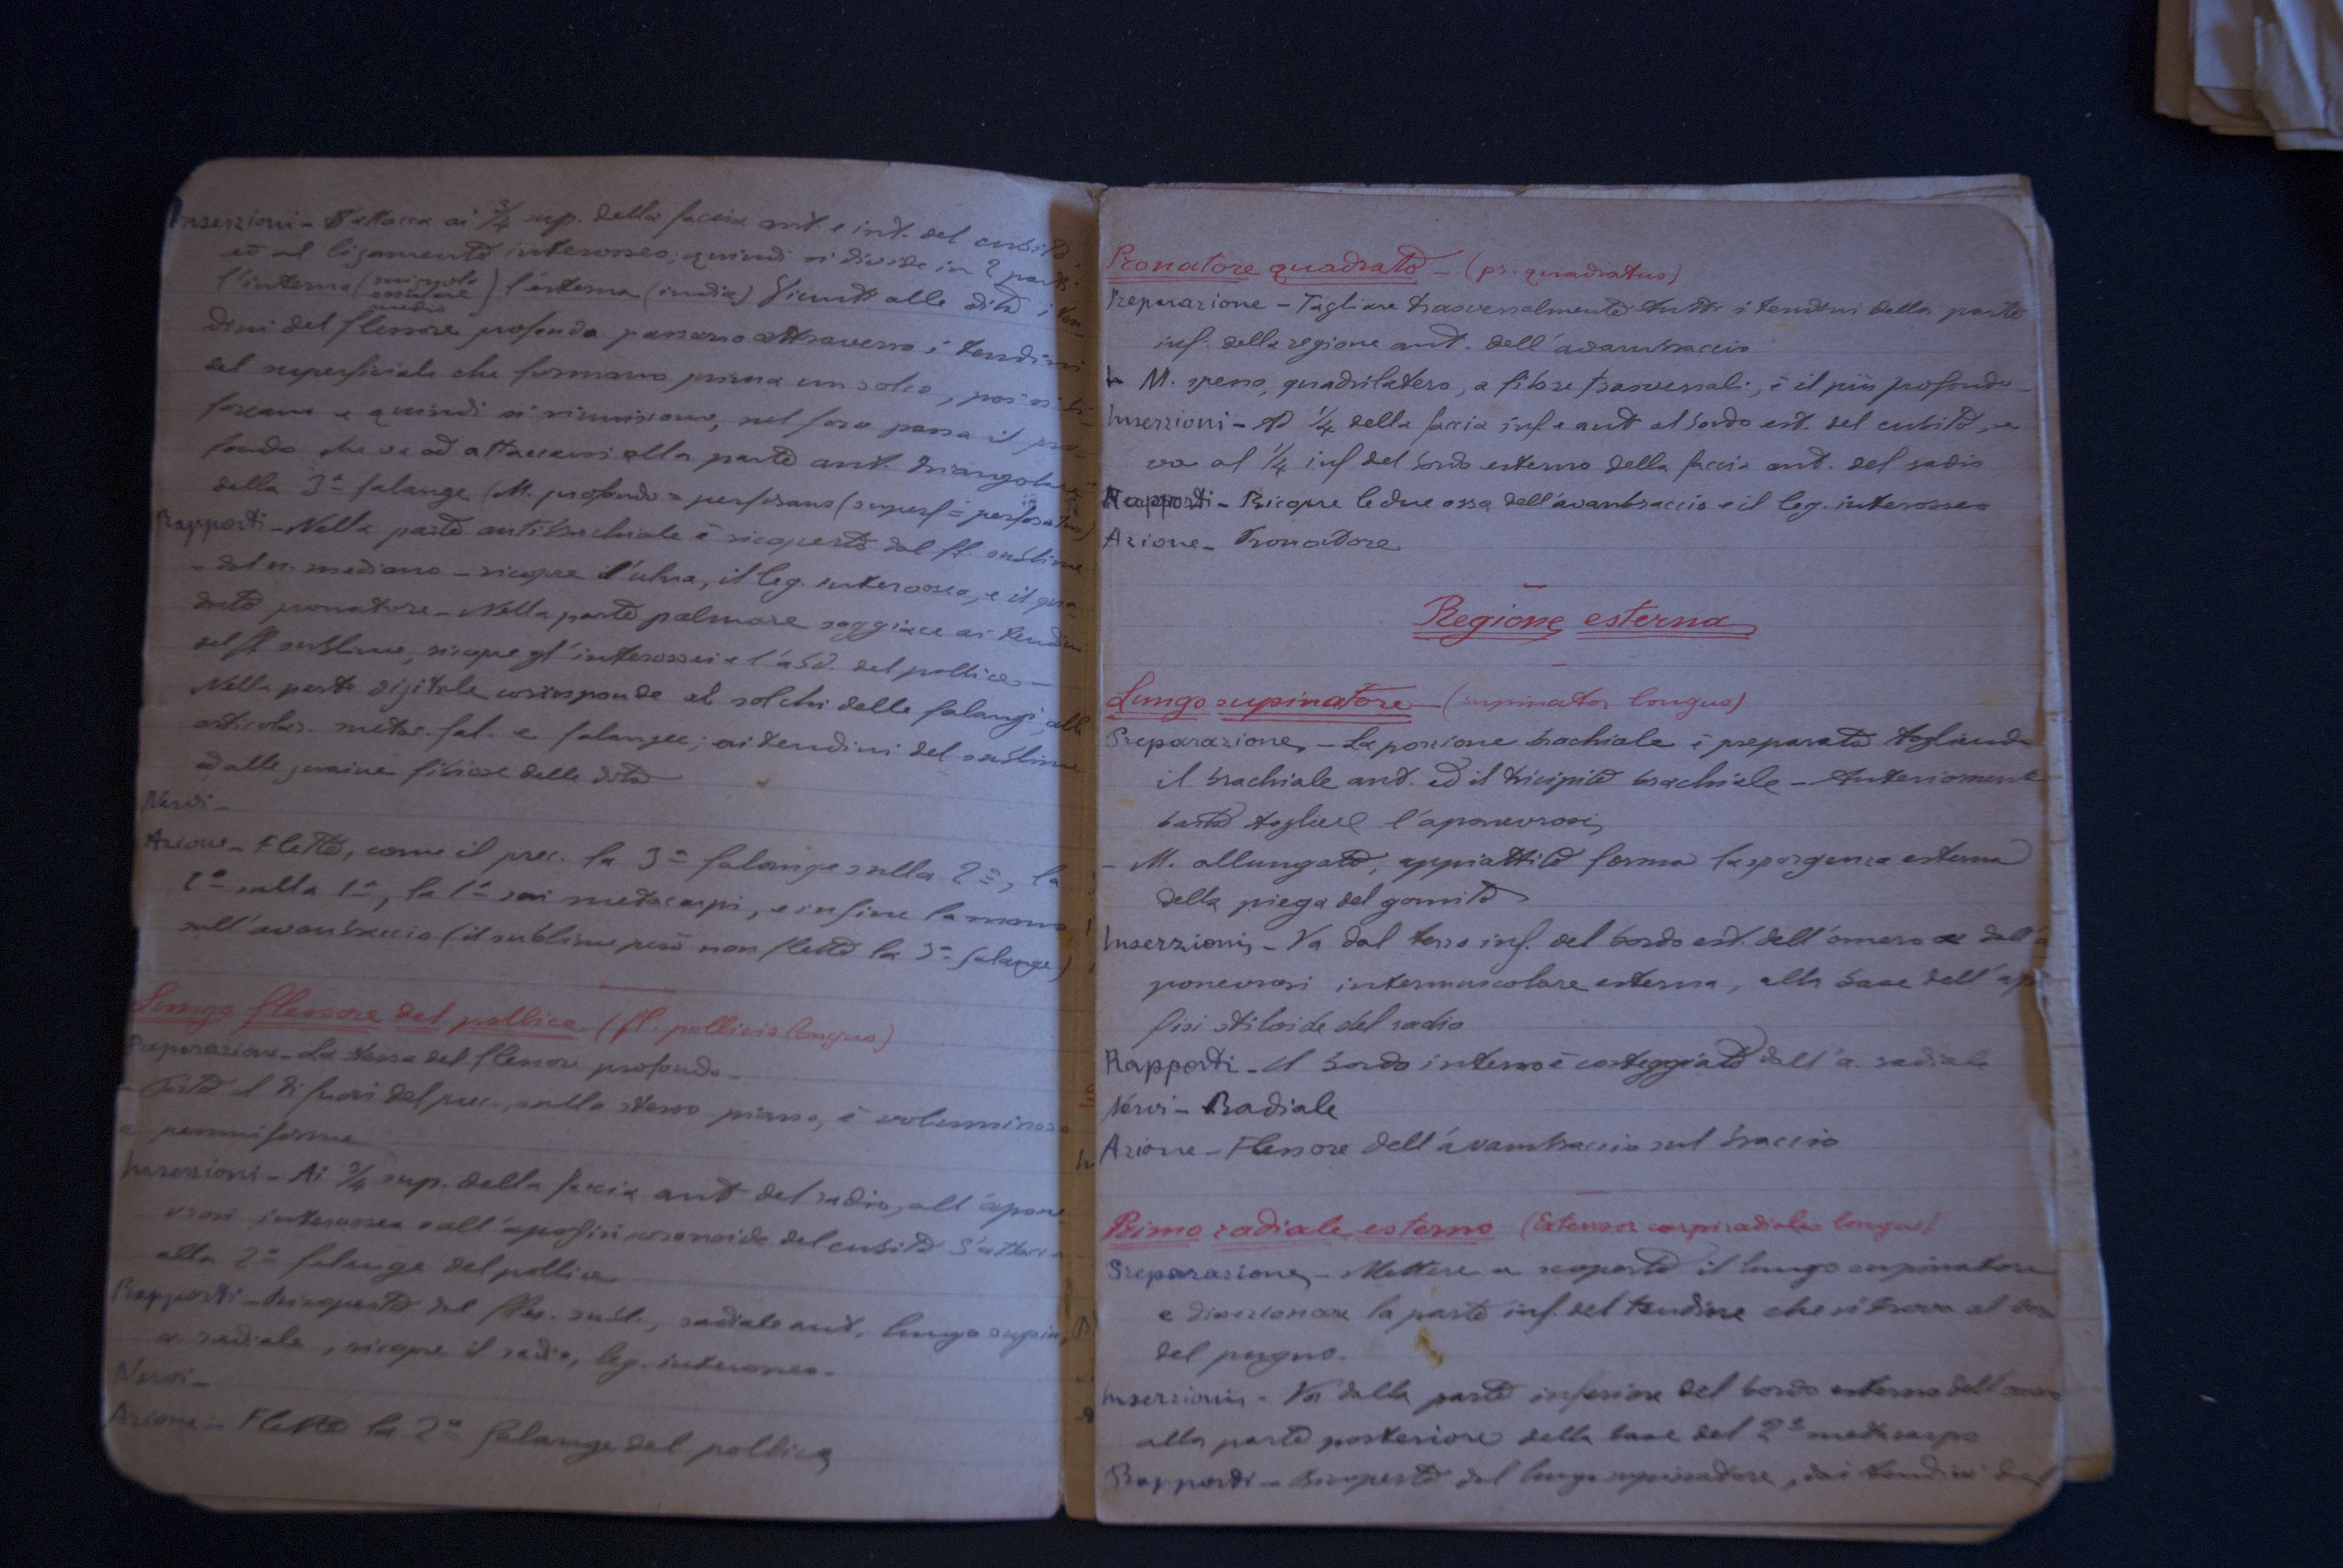 Inserzioni - S'attacca ai 3/4 sup. della faccia ant. e int. del cubito
ed al ligamento interosseo; quindi si divide in 2 parti:
l'interna (mignolo anulare medio) l'esterna (indice) Giunti alle dita i ten-
dini del flessore profondo passano attraverso i tendini
del superficiale che formano prima un solco, poi si bi-
forcano e quindi si riuniscono, nel foro passa il pro-
fondo che va ad attaccarsi alla parte ant. triangolare
della 3ª falange (M. profondo = perforans (superf = perforatus)
Rapporti - Nella parte antibrachiale è ricoperto dal fl. sublime
- dal n. mediano - ricopre l'ulna, il leg. interosseo, e il qua-
drato pronatore - Nella parte palmare soggiace ai tendini
del fl sublime, ricopre gl'interossei e l'abd. del pollice -
Nella parte digitale corrisponde ai solchi delle falangi, alle
articolaz. metac. fal. e falangee; ai tendini del sublime
ed alle guaine fibrose delle dita
Nervi -
Azione - Flette, come il prec. la 3ª falange sulla 2ª, la
2ª sulla 1ª, la 1ª sui metacarpi, e infine la mano
sull'avambraccio (il sublime però non flette la 3ª falange)
Lungo flessore del pollice (fl. pollicis longus)
Preparazione - La stessa del flessore profondo -
- Posto al di fuori del prec., sullo stesso piano, è voluminoso
e penniforme
Inserzioni - Ai 3/4 sup. della faccia ant del radio, all'apone-
vrosi interossea e all'apofisi coronoide del cubito S'attacca
alla 2ª falange del pollice
Rapporti - Ricoperto dal fles. subl., radiale ant, lungo supin,
a. radiale, ricopre il radio, leg. interosseo -
Nervi -
Azione - Flette la 2ª falange del pollice
Pronatore quadrato - (pr. quadratus)
Preparazione - Tagliare trasversalmente tutti i tendini della parte
inf. della regione ant. dell'avambraccio
- M. spesso, quadrilatero, a fibre trasversali, è il più profondo
Inserzioni - Al 1/4 della faccia inf e ant al bordo est. del cubito, e
va al 1/4 inf del bordo esterno della faccia ant. del radio
Rapporti - Ricopre le due ossa dell'avambraccio e il leg. interosseo
Azione - Pronatore
Regione esterna
Lungo supinatore - (supinator longus)
Preparazione - La porzione brachiale è preparata togliendo
il brachiale ant. ed il tricipite brachiale - Anteriormente
basta togliere l'aponevrosi
- M. allungato, appiattito forma la sporgenza esterna
della piega del gomito
Inserzioni - Va dal terzo inf. del bordo est. dell'omero e dall'a
ponevrosi intermuscolare esterna, alla base dell'apo
fisi stiloide del radio
Rapporti - Il bordo interno è costeggiato dall'a. radiale
Nervi - Radiale
Azione - Flessore dell'avambraccio sul braccio
Primo radiale esterno (Extensor carpi radialis longus)
Preparazione - Mettere a scoperto il lungo supinatore
e disezionare la parte inf. del tendine che si trova al
del pugno.
Inserzioni - Va dalla parte inferiore del bordo esterno dell'omero
alla parte posteriore della base del 2º metacarpo
Rapporti - Ricoperto dal lungo supinatore, dai tendini del